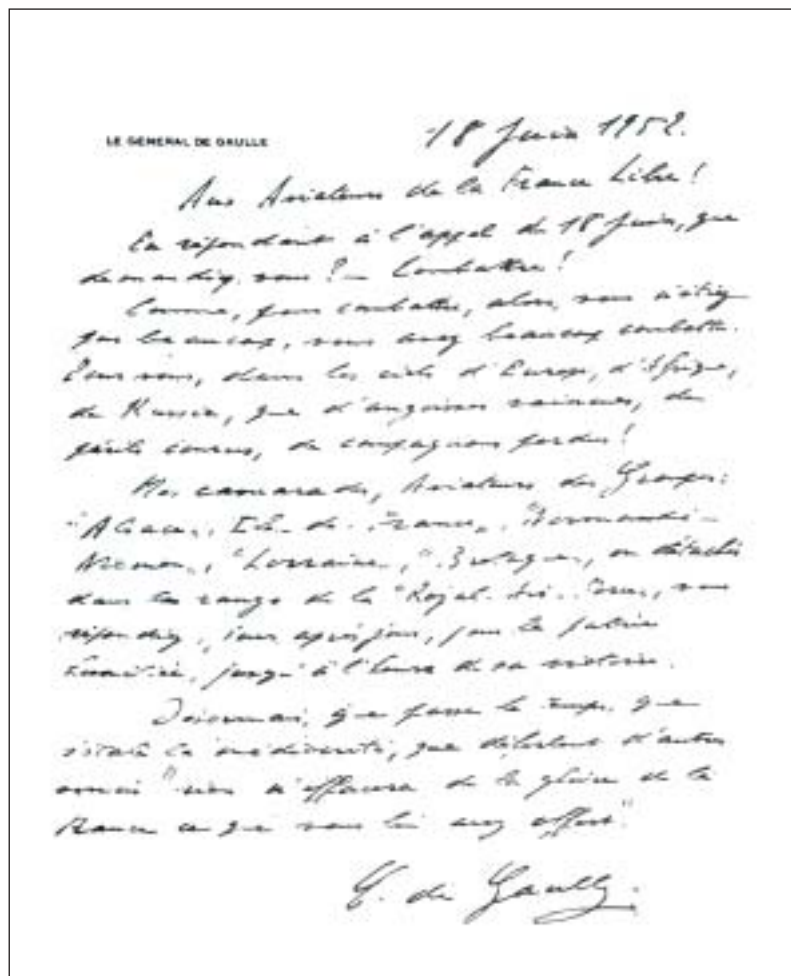 LE GENERAL DE GAULLE
18 Juin 1952.
Aux Aviateurs de la France Libre !
En répondant à l'appel du 18 Juin, que
demandiez-vous ? – Combattre !
Comme, pour combattre, alors, vous n'étiez
pas beaucoup, vous avez beaucoup combattu.
Pour vous, dans les ciels d'Europe, d'Afrique,
de Russie, que d'angoisses vaincues, de
périls courus, de compagnons perdus !
Mes camarades, Aviateurs des Groupes :
"Alsace", Ile-de-France, "Normandie-
Niemen", "Lorraine", "Bretagne", ou détachés
dans les rangs de la "Royal-Air-Force", vous
répondiez, jour après jour, pour la patrie
jusqu'à l'heure de sa victoire.
Désormais, que passe le temps, que
s'étale la médiocrité, que déferlent d'autres
"rien n'effacera de la gloire de la
France ce que vous lui avez offert."
C. de Gaulle.